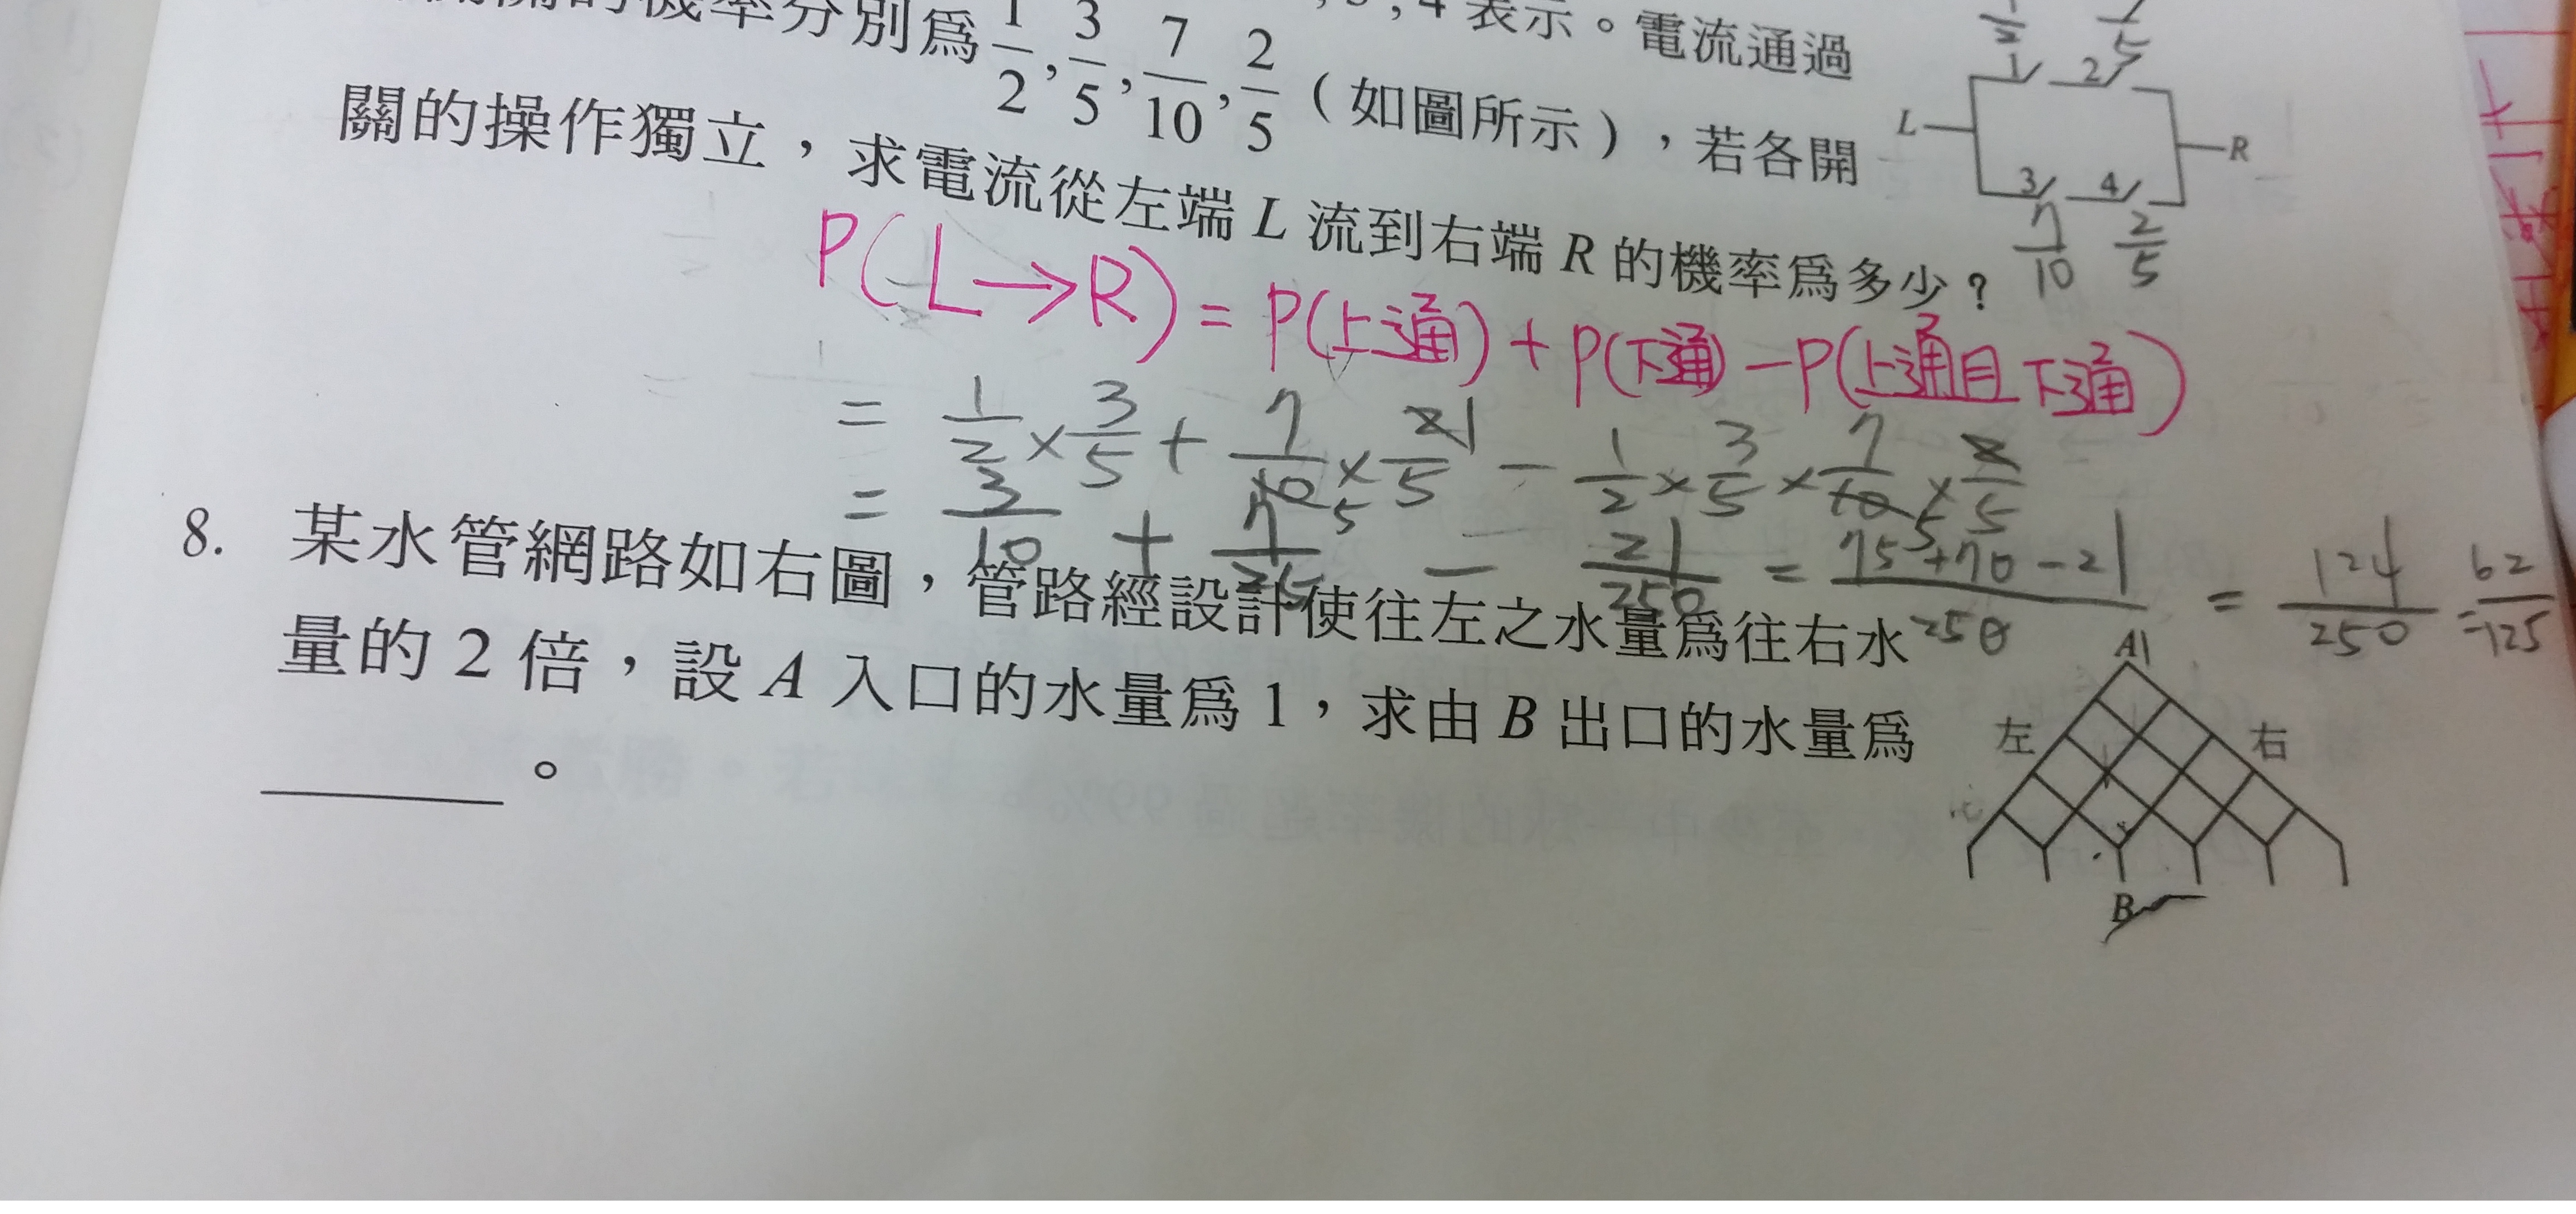 的機率分別為 1/2, 3/5, 7/10, 2/5 (如圖所示),若各開
4 表示。電流通過
關的操作獨立,求電流從左端 L 流到右端 R 的機率為多少?
1/2
1 2
L R
3 4
7/10 2/5
P(L→R) = P(上通) + P(下通) - P(上通且下通)
= 1/2 × 3/5 + 7/10 × 2/5 - 1/2 × 3/5 × 7/10 × 2/5
= 3/10 + 7/25 - 21/250 = 75+70-21/250 = 124/250 = 62/125
8. 某水管網路如右圖,管路經設計使往左之水量為往右水
量的 2 倍,設 A 入口的水量為 1,求由 B 出口的水量為
。
A
左 右
B